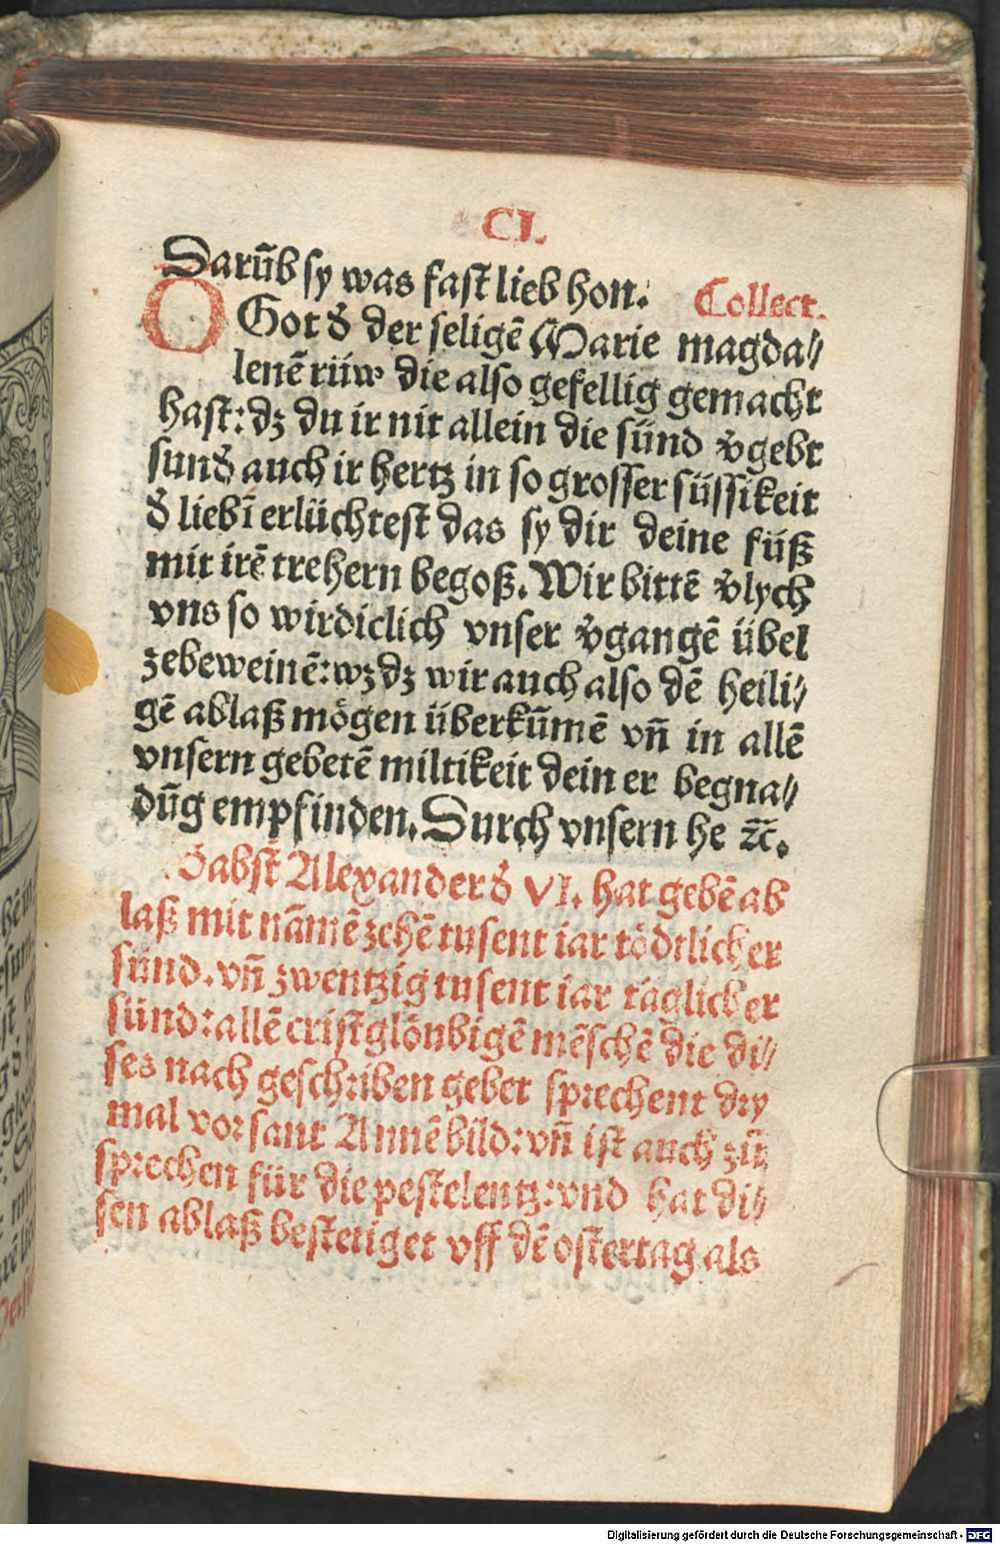 CL.
Darūb sy was fast lieb hon. Collect.
O Got d̕ der seligē Marie magda⸗
lenē rüw die also gefellig gemacht
hast: dz du ir nit allein die sünd v̕gebt
sund̕ auch ir hertz in so grosser süssikeit
d̕ liebī erlüchtest das sy dir deine füß
mit irē trehern begoß. Wir bittē v̕lych
vns so wirdiclich vnser v̕gangē übel
zebeweinē: wz dz wir auch also dē heili⸗
gē ablaß mögen überkūmē vn̄ in allē
vnsern gebetē miltikeit dein er begna⸗
dūg empfinden. Durch vnsern he ⁊c̄.
Babst Alexander d̕ VI. hat gebē ab
laß mit nāmē zehē tusent iar tödtlicher
sünd. vn̄ zwentzig tusent iar täglicher
sünd: allē cristglönbigē mēschē die di⸗
ses nach geschriben gebet sprechent dry
mal vor sant Annē bild: vn̄ ist auch zů
sprechen für die pestelentz: vnd hat di⸗
sen ablaß bestetiget vff dē ostertag als
Digitalisierung gefördert durch die Deutsche Forschungsgemeinschaft - DFG